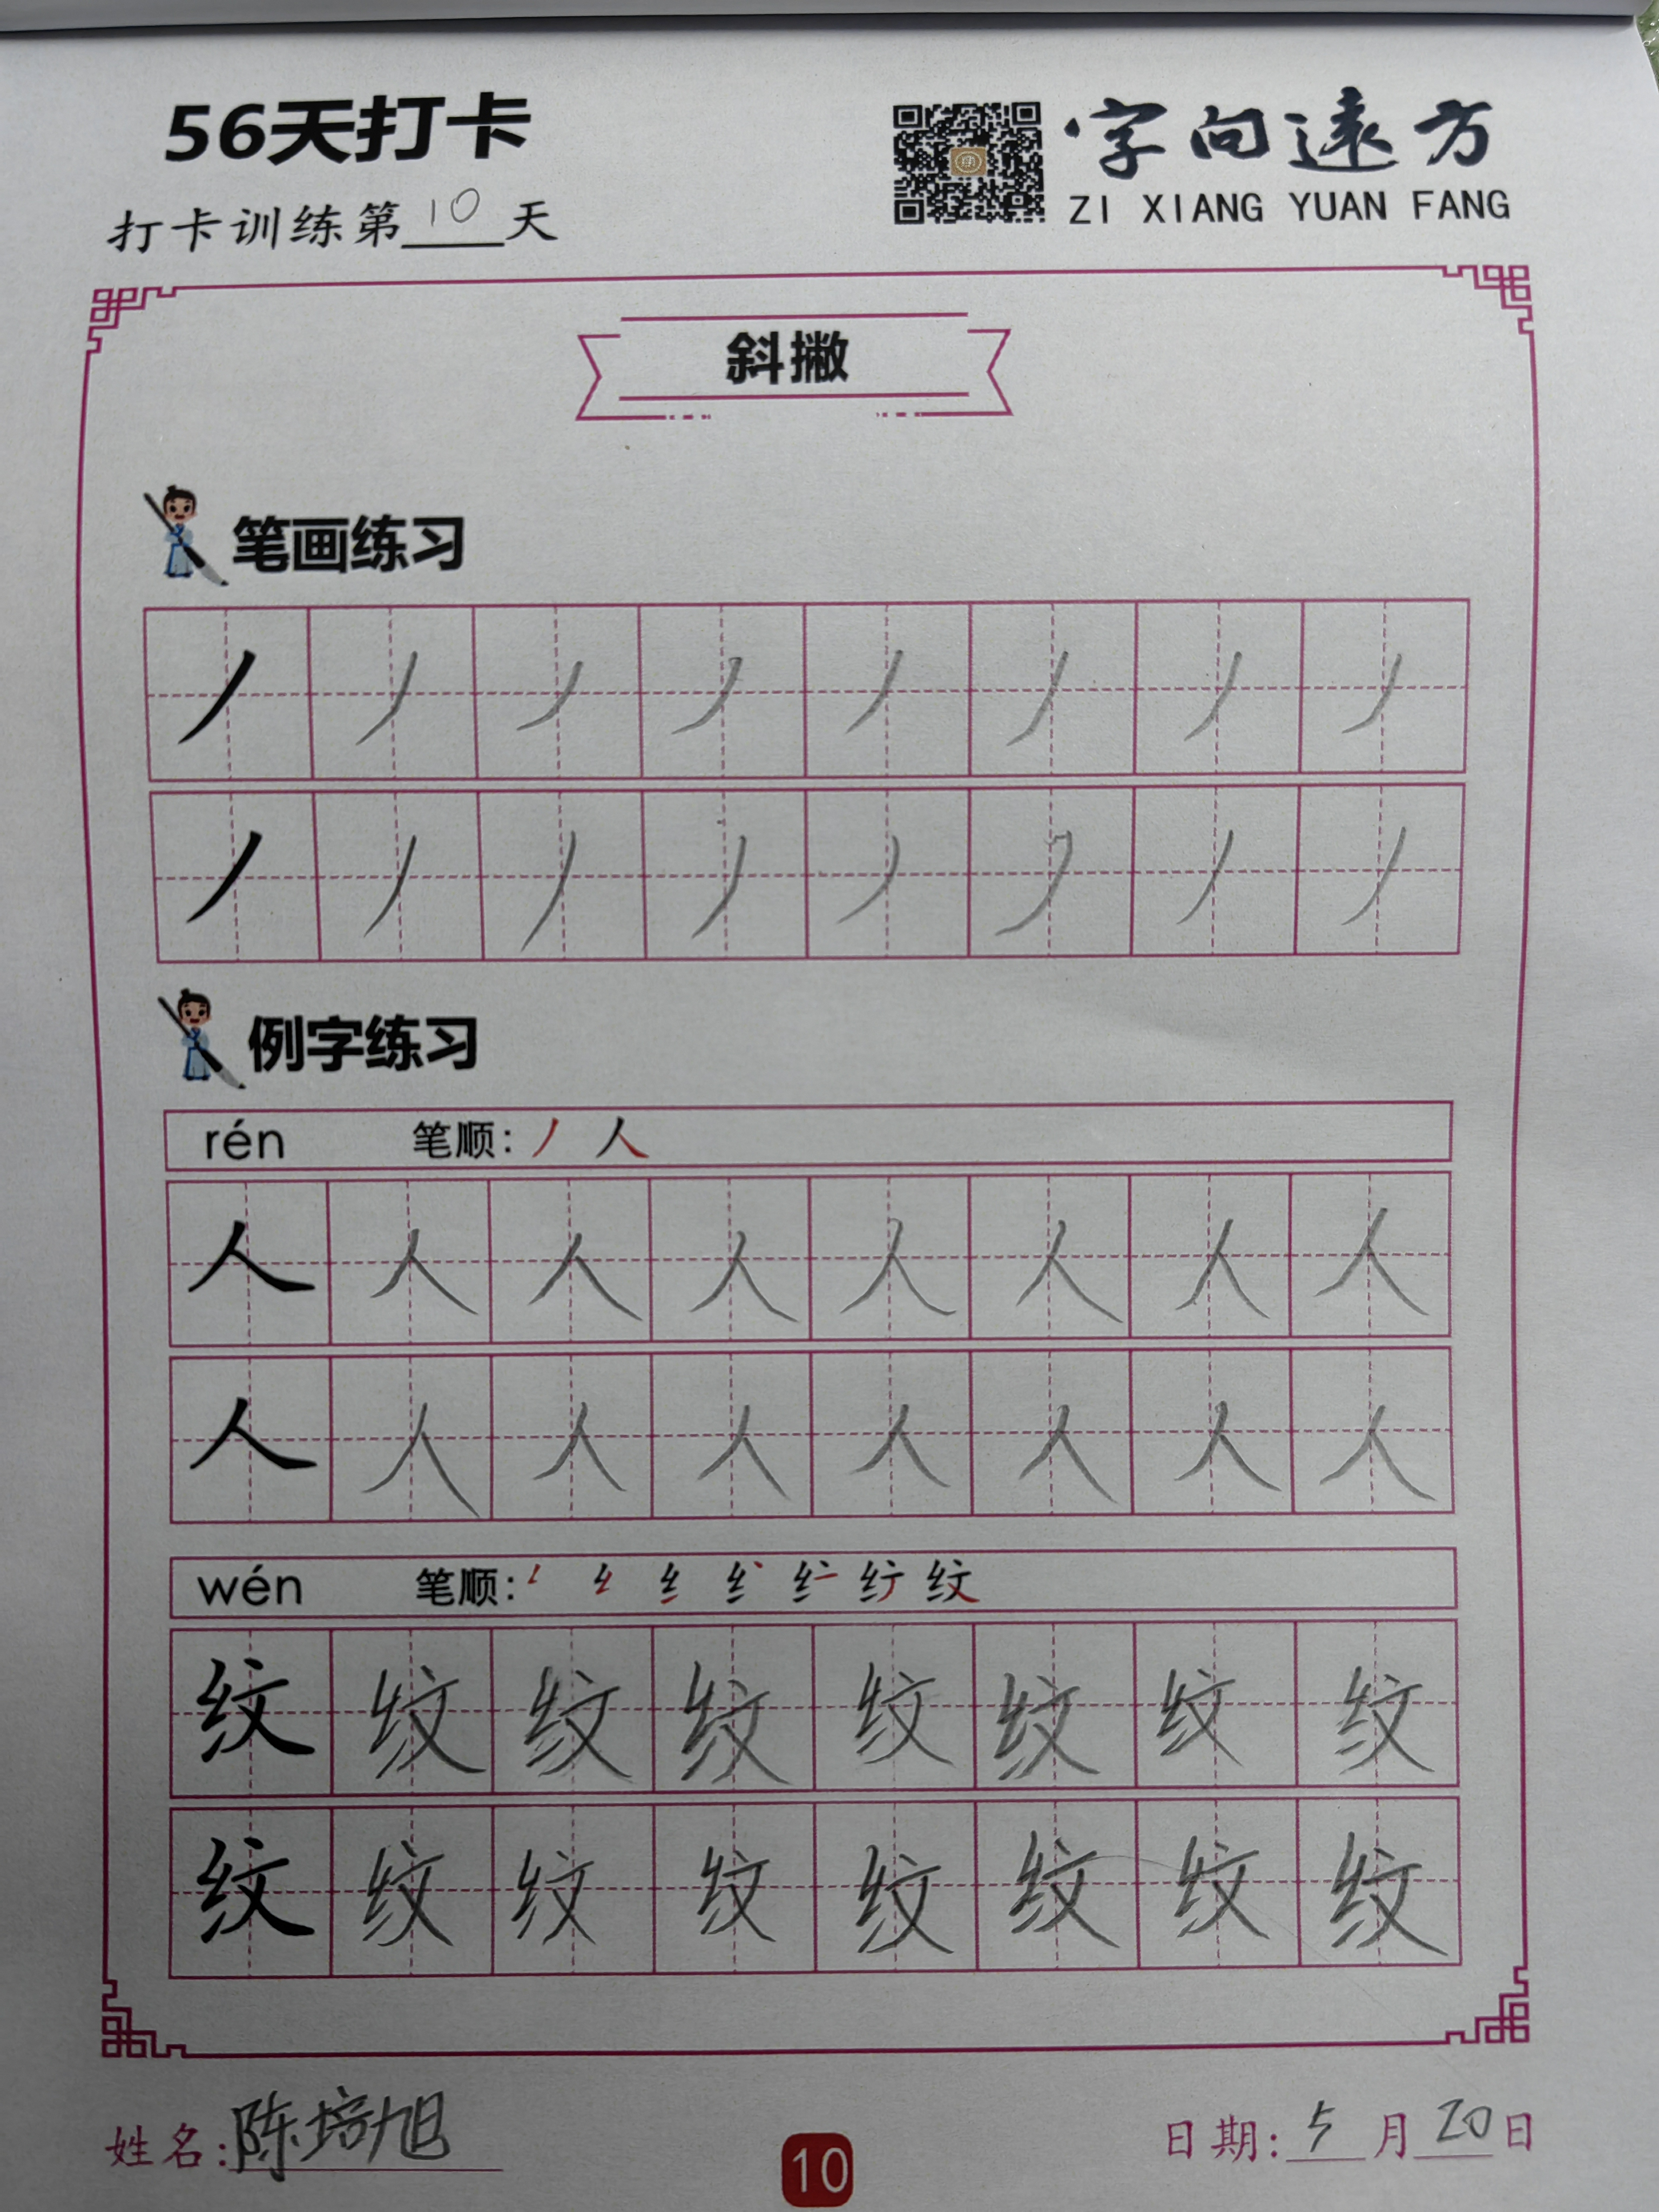 56天打卡
字向遠方
ZI XIANG YUAN FANG
打卡训练第10天
斜撇
笔画练习
丿 丿 丿 丿 丿 丿 丿 丿
丿 丿 丿 丿 丿 丿 丿 丿
例字练习
rén 笔顺: 丿 人
人 人 人 人 人 人 人 人
人 人 人 人 人 人 人 人
wén 笔顺:
纹 纹 纹 纹 纹 纹 纹 纹
纹 纹 纹 纹 纹 纹 纹 纹
姓名: 陈培旭
日期: 5月20日
10